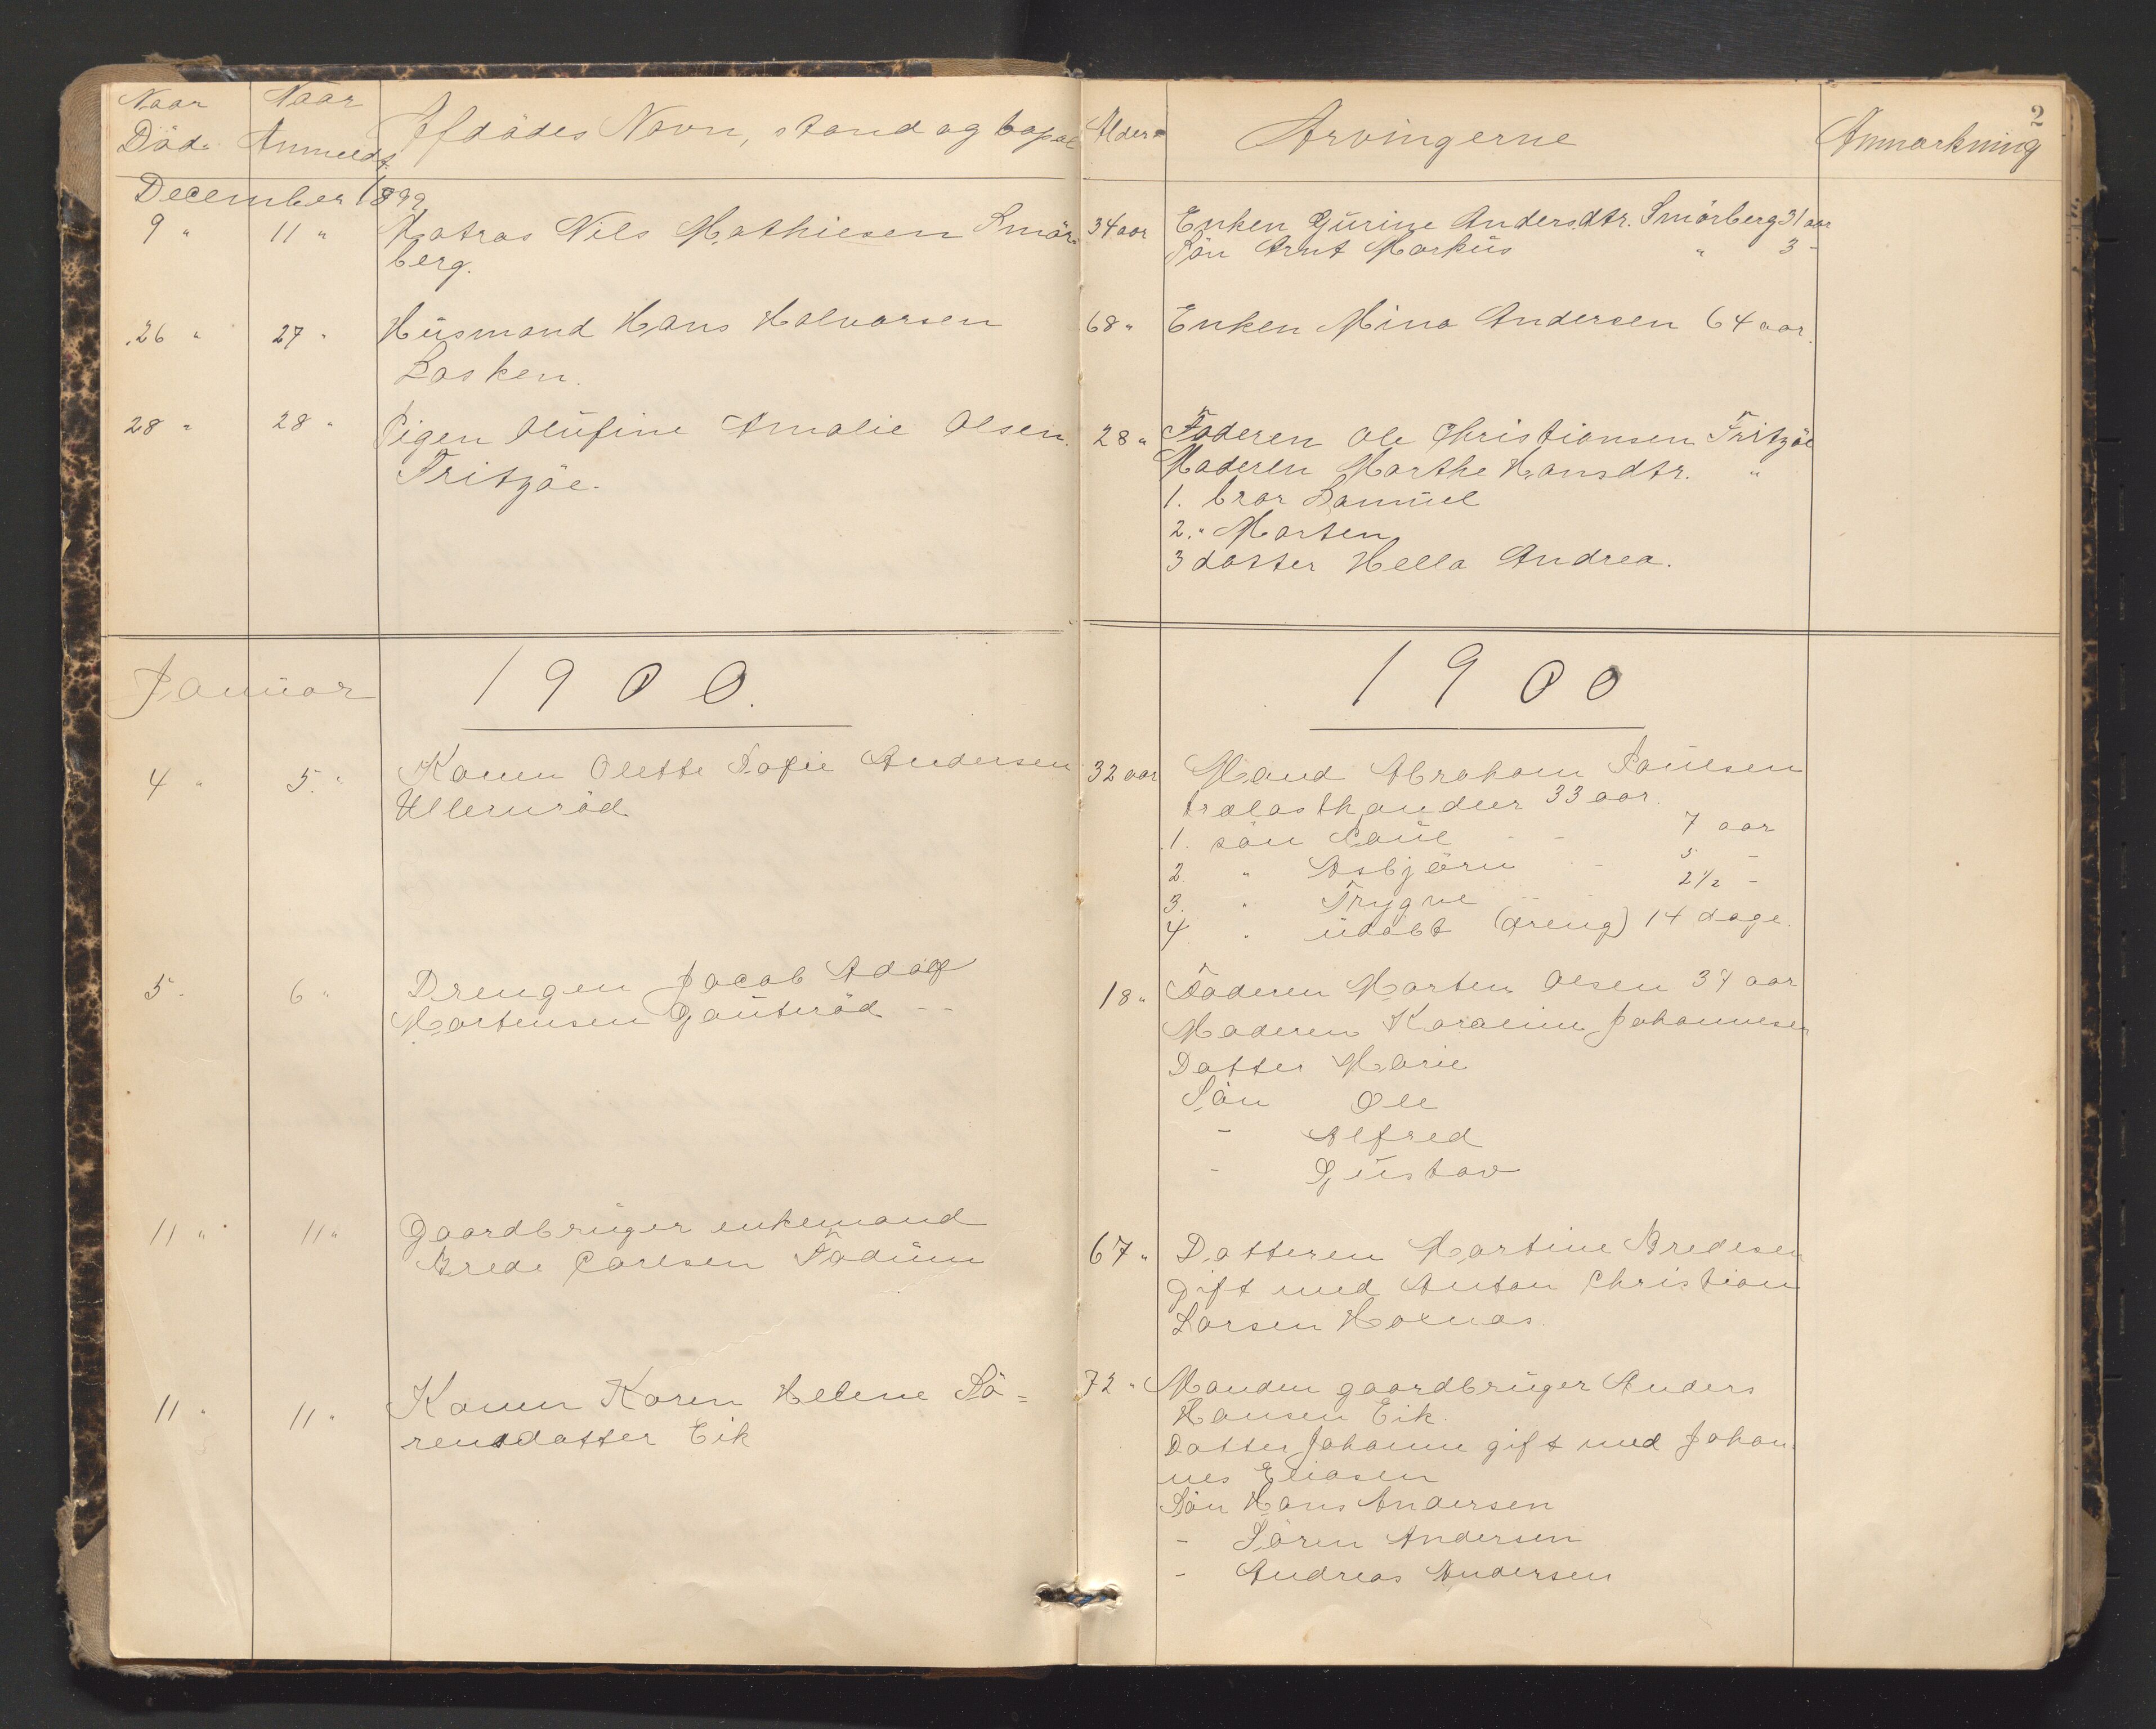 2
Naar Död. Naar Anmeldt. Afdödes Navn, stand og bopæl Alder Arvingerne Anmærkning
December 1899
9 " 11 " Matros Nils Mathiesen Smör- 34 aar Enken Gurine Andersdtr. Smörberg 31 aar
berg. Sön Arnt Markus " 3 -
26 " 27 " Husmand Hans Halvorsen 68 " Enken Mina Andersen 64 aar.
Lasken.
28 " 28 " Pigen Olufine Amalie Olsen. 28 " Faderen Ole Christiansen Fritzöe
Fritzöe. Moderen Marthe Hansdtr. "
1. bror Samuel
2. " Morten
3 datter Hella Andrea.
Januar 1900. 1900
4 " 5. " Konen Olette Sofie Andersen 32 aar Mand Abraham Paulsen
Ullernröd trælasthandler 33 aar.
1. sön Paul - - 7 aar
2. " Asbjörn - 5 -
3. " Trygve - 2 1/2 -
4. " udøbt (dreng) 14 dage.
5 - 6 " Drengen Jacob Adolf 18 " Faderen Morten Olsen 37 aar
Mortensen Gauteröd - - Moderen Karoline Johannesen
Datter Marie
Sön Ole
- Alfred
- Gustav
11 " 11 " Gaardbruger enkemand 67 " Datteren Martine Bredesen
Brede Carlsen Fadum gift med Anton Christian
Larsen Holmas.
11 " 11 " Konen Karen Helene Sö= 72 " Manden gaardbruger Anders
rensdatter Eik Hansen Eik.
Datter Johanne gift med Johan-
nes Eliasen
Sön Hans Andersen
- Sören Andersen
- Andreas Andersen